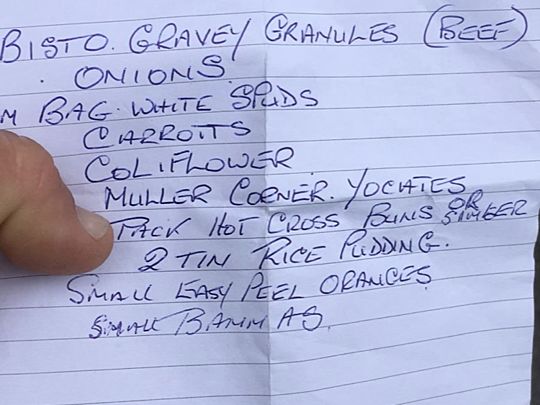 BISTO. GRAVEY GRANULES (BEEF)
. ONIONS.
M BAG. WHITE SPUDS
CARROTTS
COLIFLOWER.
MULLER CORNER. YOGATES
PACK HOT CROSS BUNS OR SIMLER
2 TIN RICE PUDDING.
SMALL EASY PEEL ORANGES.
SMALL BANNAS.